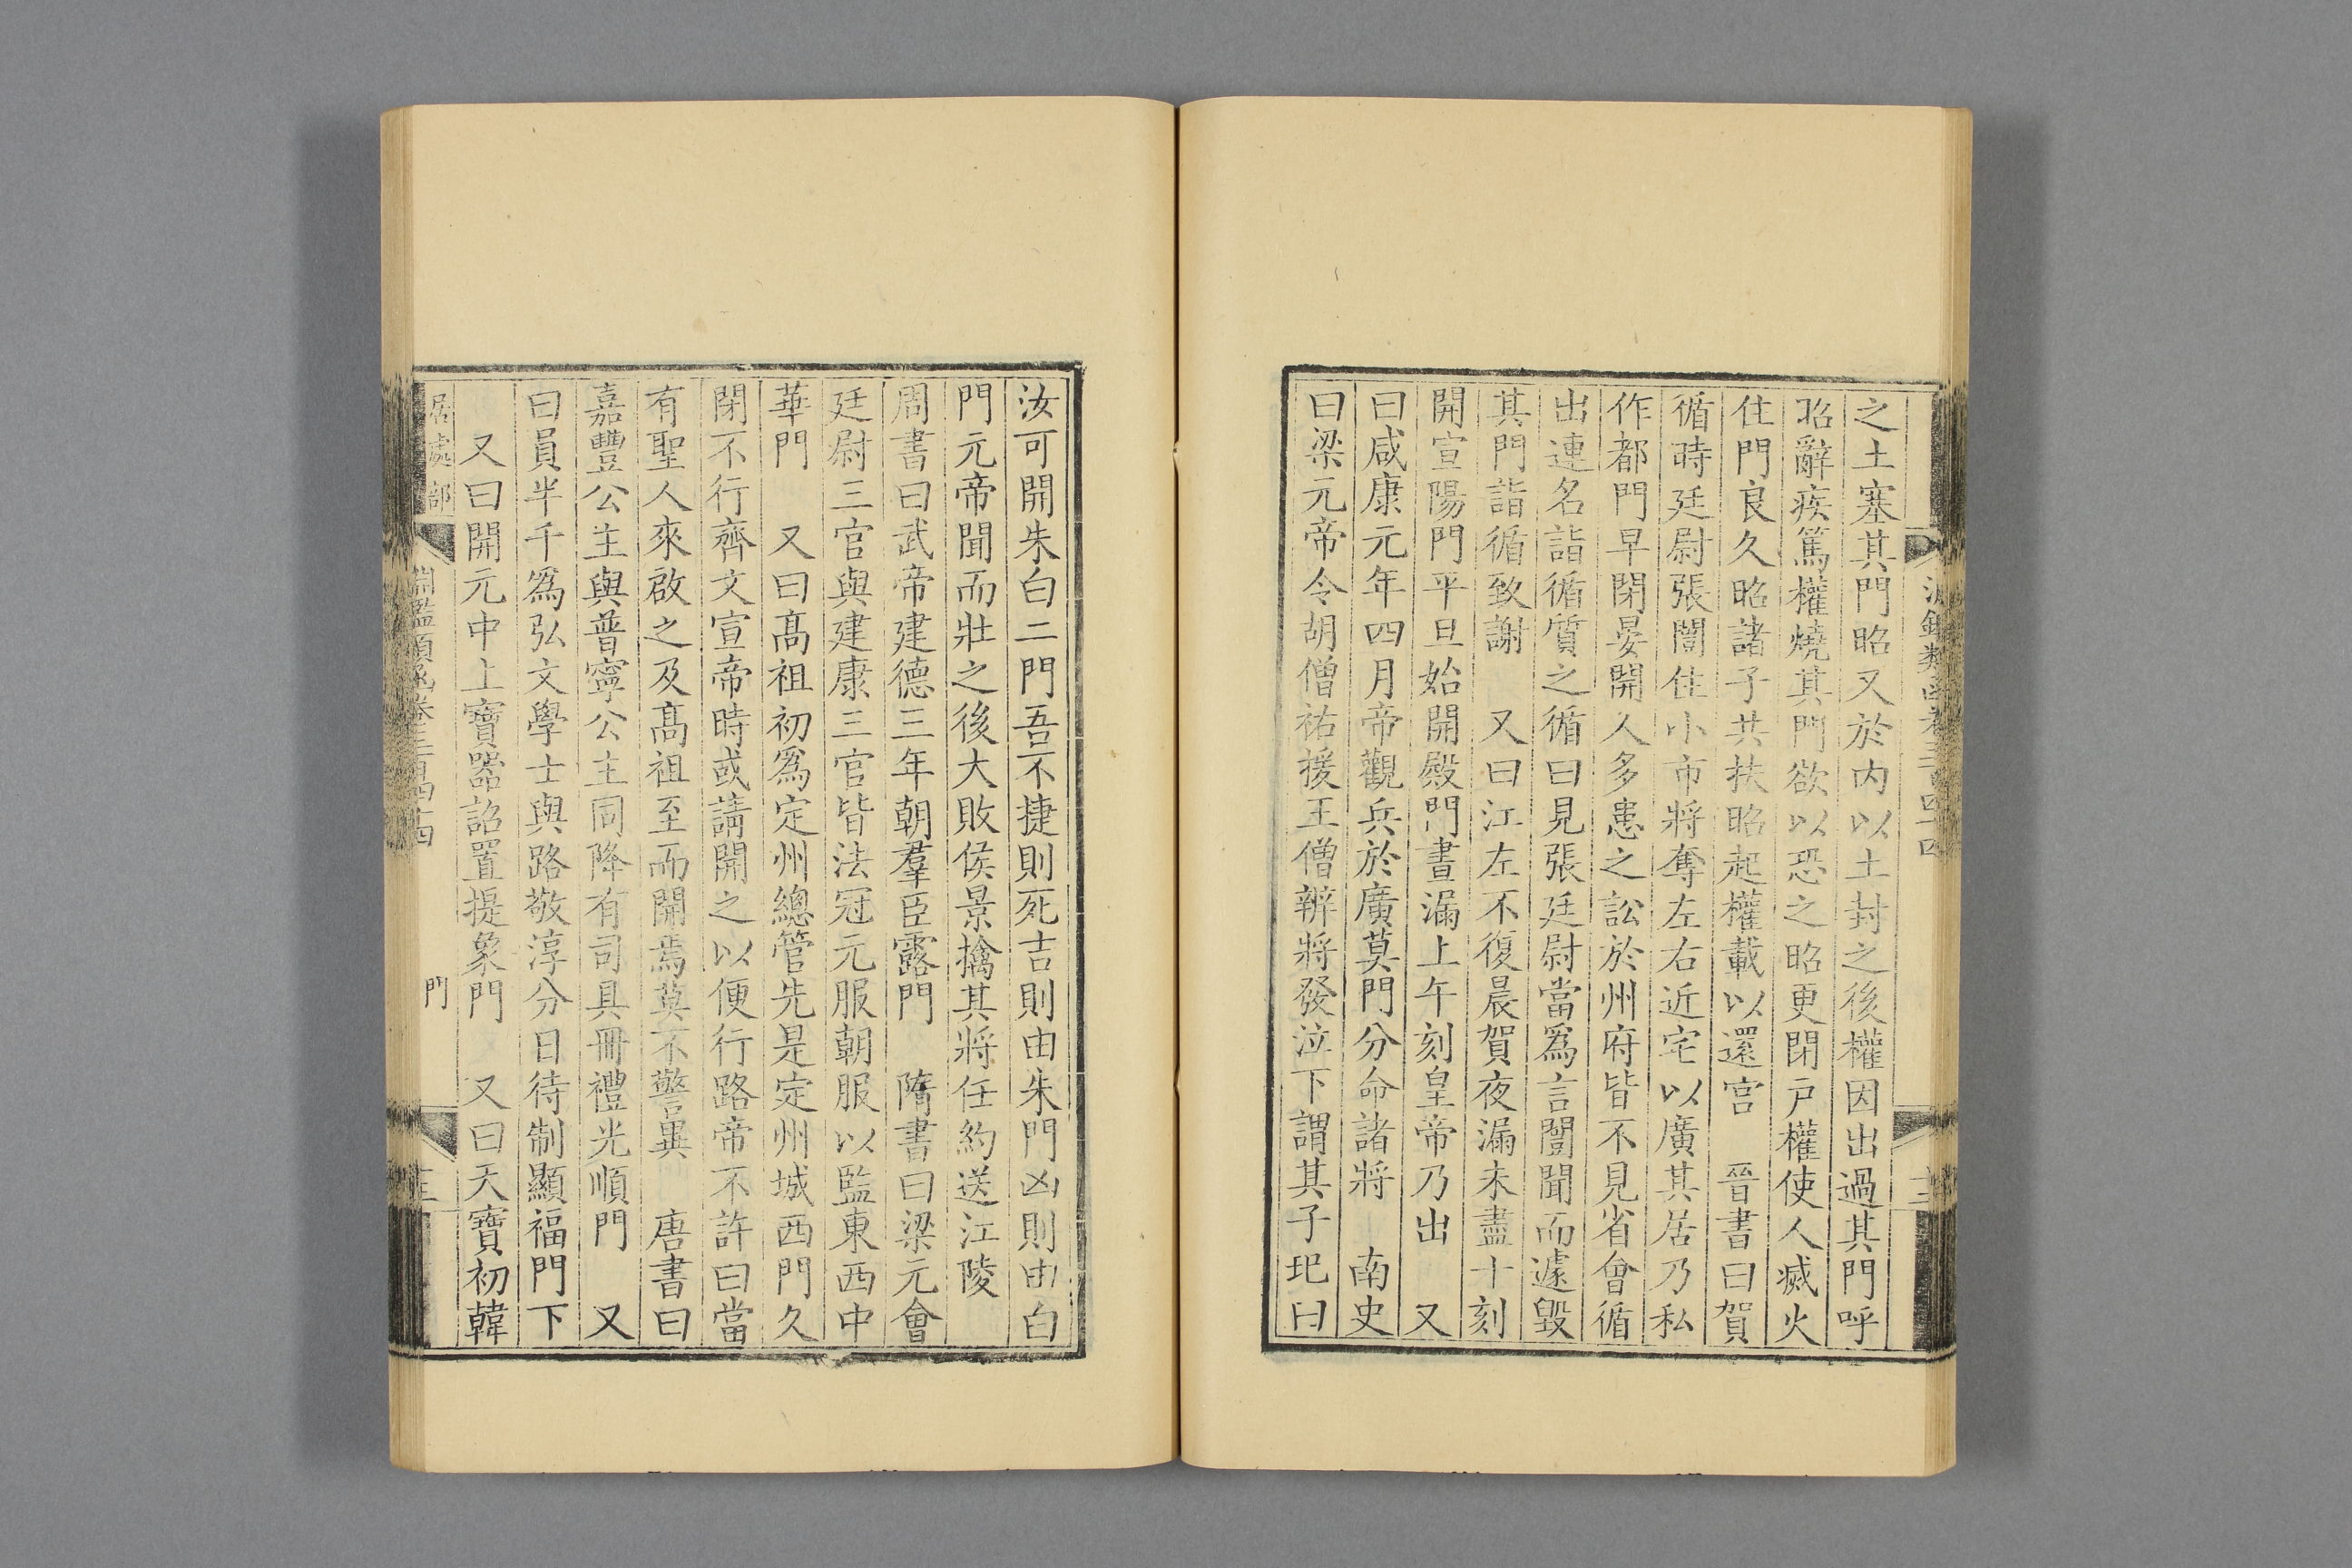 之土塞其門昭又於内以土封之後權因出過其門呼
昭辭疾篤權燒其門欲以恐之昭更閉戸權使人滅火
住門良久昭諸子共扶昭起權載以還宮　晉書曰賀
循時廷尉張闓住小市將奪左右近宅以廣其居乃私
作都門早閉晏開人多患之訟於州府皆不見省會循
出連名詣循質之循曰見張廷尉當爲言闓聞而遽毀
其門詣循致謝　又曰江左不復晨賀夜漏未盡十刻
開宣陽門平旦始開殿門晝漏上午刻皇帝乃出　又
曰咸康元年四月帝觀兵於廣莫門分命諸將　南史
曰梁元帝令胡僧祐援王僧辨將發泣下謂其子圯曰
汝可開朱白二門吾不捷則死吉則由朱門凶則由白
門元帝聞而壯之後大敗侯景擒其將任約送江陵
周書曰武帝建德三年朝羣臣露門　隋書曰梁元會
廷尉三官與建康三官皆法冠元服朝服以監東西中
華門　又曰髙祖初爲定州總管先是定州城西門久
閉不行齊文宣帝時或請開之以便行路帝不許曰當
有聖人來啟之及髙祖至而開焉莫不警異　唐書曰
嘉豐公主與普寧公主同降有司具冊禮光順門　又
曰員半千爲弘文學士與路敬淳分日待制顯福門下
又曰開元中上寶器詔置提象門　又曰天寶初韓
居處部　淵鑑類函卷三百四十四　門